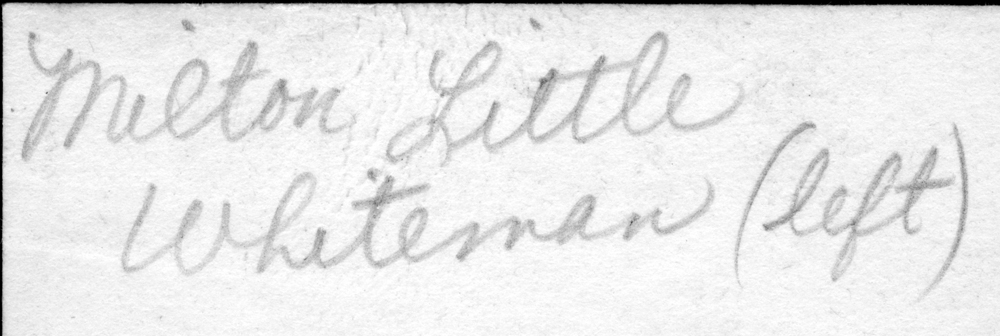 Milton Little
Whiteman (left)